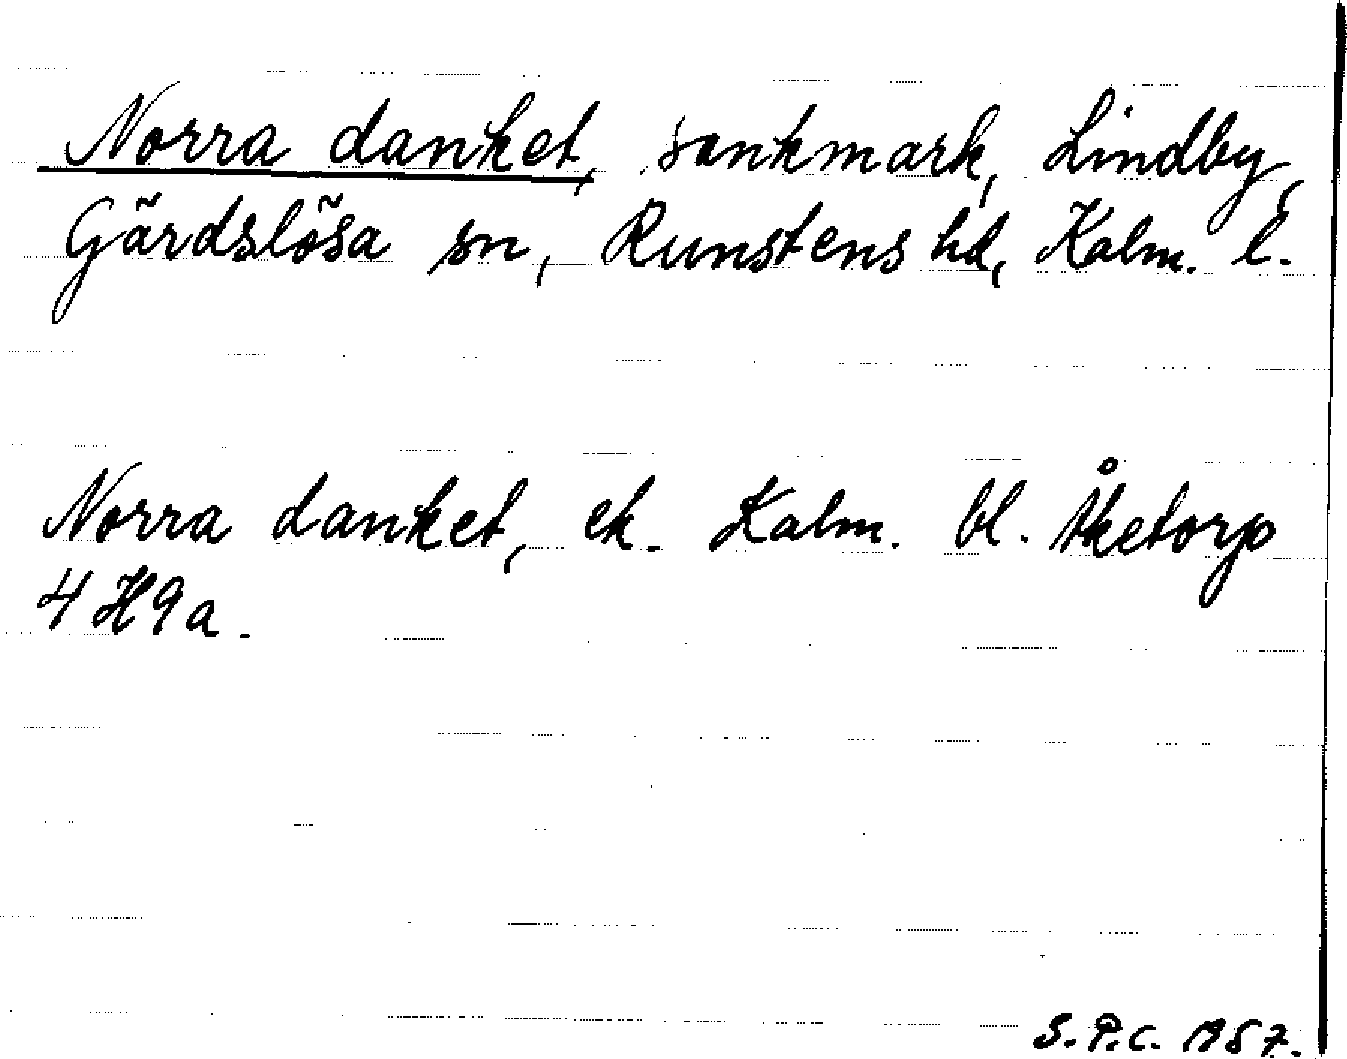 Norra danket, sankmark, Lindby,
Gärdslösa sn, Runstens hd, Kalm. l.
Norra danket, ek. Kalm. bl. Åketorp
4 H 9 a.
S.P.C. 1957.